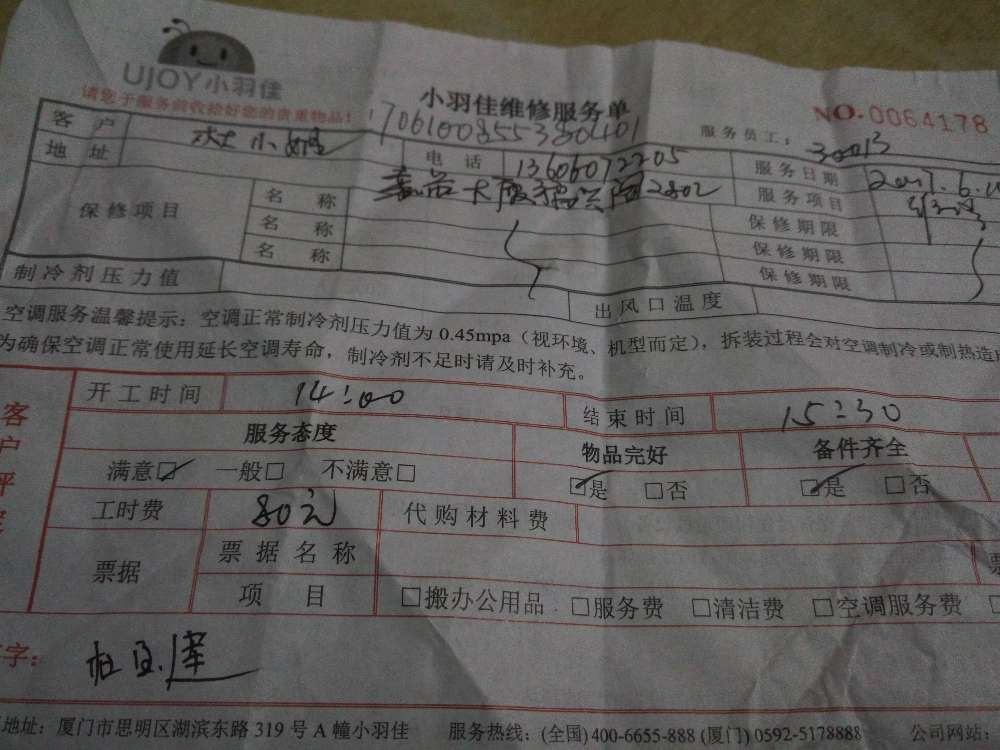 UJOY小羽佳
请您于服务前收拾好您的贵重物品!
小羽佳维修服务单
NO.0064178
1706100855380401
服务员工: 30013
客户 小姐 电话 13606072205 服务日期 2017.6.
地址 2802 服务项目
保修项目 名称 保修期限
名称 保修期限
名称 保修期限
制冷剂压力值 出风口温度
空调服务温馨提示:空调正常制冷剂压力值为 0.45mpa(视环境、机型而定),拆装过程会对空调制冷或制热造
为确保空调正常使用延长空调寿命,制冷剂不足时请及时补充。
客户评
开工时间 14:00 结束时间 15:30
服务态度 物品完好 备件齐全
满意☑ 一般□ 不满意□ ☑是 □否 ☑是 □否
工时费 80元 代购材料费
票据 票据名称 票
项目 □搬办公用品 □服务费 □清洁费 □空调服务费
字:
地址:厦门市思明区湖滨东路 319 号 A 幢小羽佳 服务热线:(全国)400-6655-888 (厦门) 0592-5178888 公司网站: